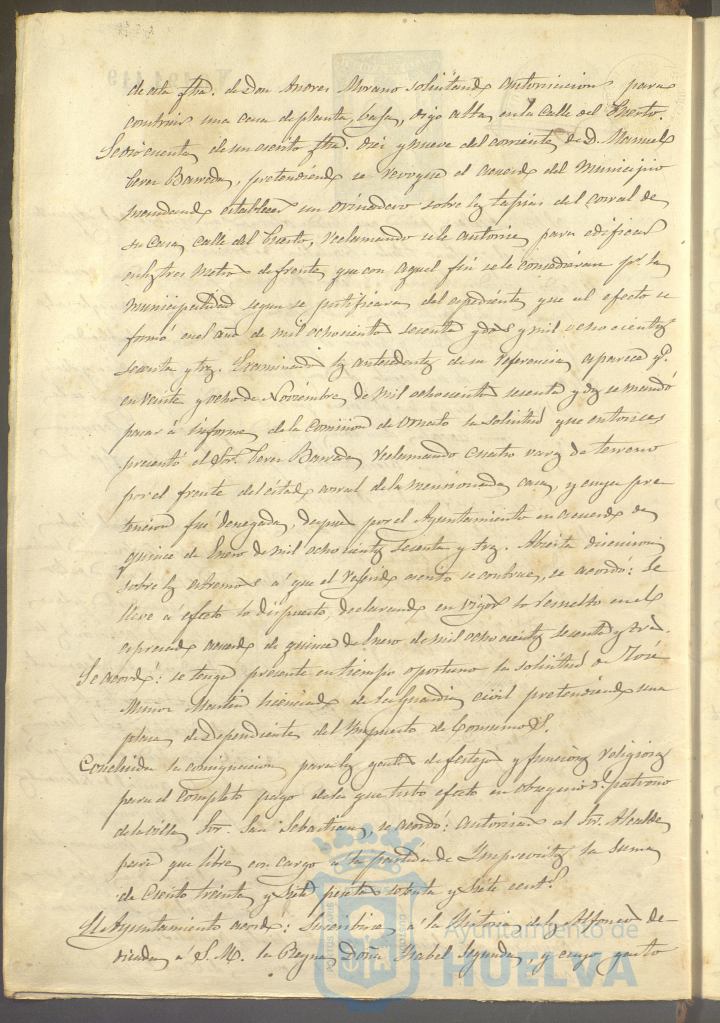 de esta fha. de Don Andres Morano solicitando autorizacion para
construir una casa de planta baja, digo alta, en la Calle del Puerto.
Se dió cuenta de un escrito fha. diez y nueve del corriente, de D. Manuel
Perez Barreda, pretendiendo se revoque el acuerdo del Municipio
mandando establecer un orinadero sobre las tapias del corral de
su Casa, calle del Puerto, reclamando se le autorice para edificar
en los tres metros de frente que con aquel fin se le concedieran pr. la
municipalidad segun se justificara del expediente que al efecto se
formó en el año de mil ochocientos sesenta y dos y mil ochocientos
sesenta y tres. Examinados los antecedentes de su referencia, aparece qe.
en veinte y ocho de Noviembre de mil ochocientos sesenta y dos se mandó
pasar á informe de la Comision de ornato la solicitud que entonces
presentó el Sor. Perez Barreda reclamando cuatro varas de terreno
por el frente del citado corral de la mencionada casa, y cuya pre-
tension fué denegada, despues por el Ayuntamiento en acuerdo de
quince de Enero de mil ochocientos sesenta y tres. Abierta discusion
sobre los estremos á que el referido escrito se contrae, se acordó: Se
lleve á efecto lo dispuesto, declarando en vigor lo resuelto en el
espresado acuerdo de quince de Enero de mil ochocientos sesenta y tres.
Se acordó: se tenga presente en tiempo oportuno la solicitud de José
Muñoz Martin licenciado de la Guardia civil pretendiendo una
plaza de Dependiente del Impuesto de Consumos.
Concluida la consignacion para los gastos de festejos y funciones religiosas
para el completo pago de la que tubo efecto en obsequio del patrono
de la villa Sor. San Sebastian, se acordó: Autorizar al Sor. Alcalde
para que libre con cargo á la partida de Imprevistos la suma
de Ciento treinta y siete pesetas setenta y siete cents.
El Ayuntamiento acordó: Suscribirse á la Historia de los Alfonsos de-
dicada á S. M. la Reyna Doña Ysabel Segunda, y cuyo gasto
Ayuntamiento de
HUELVA